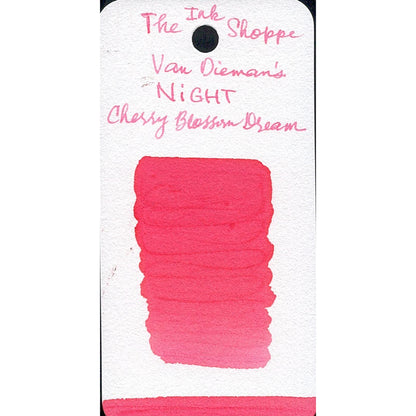 The Ink Shoppe
Van Dieman's
NIGHT
Cherry Blossom Dream